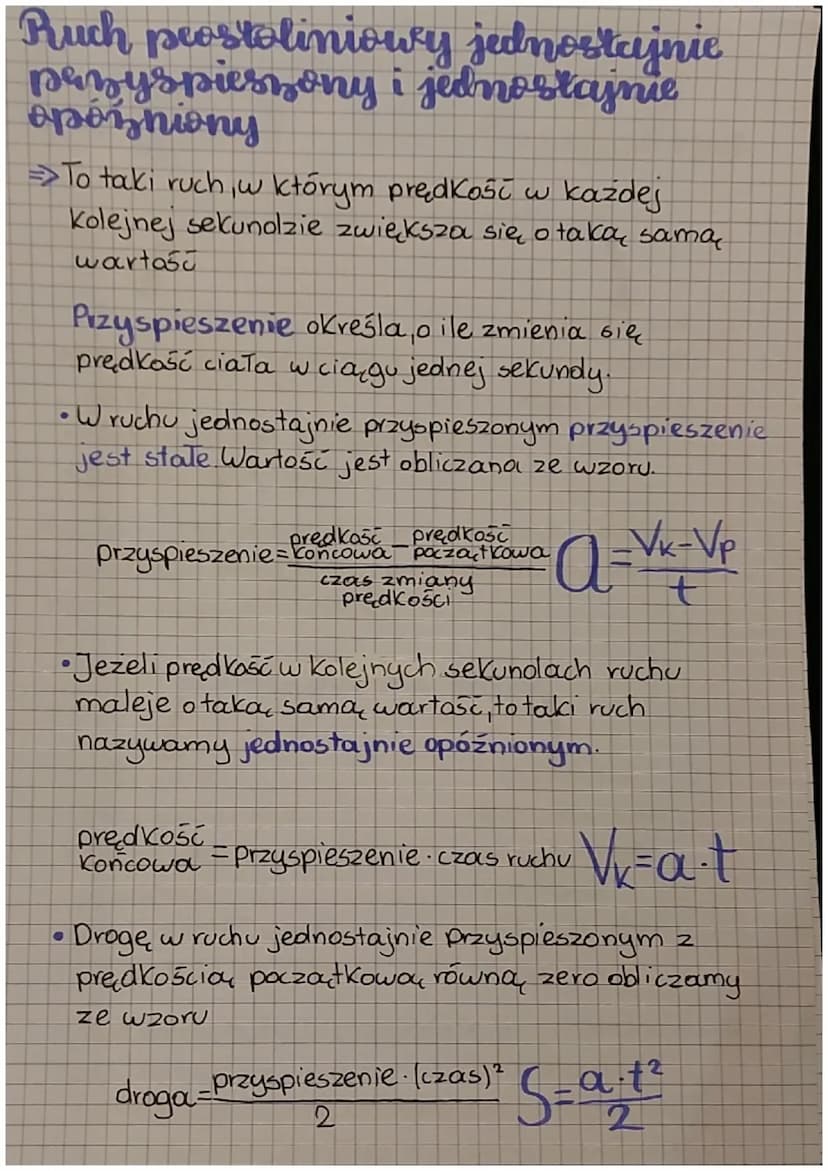 Ruch prostoliniowy jednostajnie
przyspieszony i jednostajnie
opóźniony
⇒ To taki ruch, w którym prędkość w każdej
kolejnej sekundzie zwiększa się o taką samą
wartość
Przyspieszenie określa, o ile zmienia się
prędkość ciała w ciągu jednej sekundy.
• W ruchu jednostajnie przyspieszonym przyspieszenie
jest stałe. Wartość jest obliczana ze wzoru.
przyspieszenie = (prędkość końcowa - prędkość początkowa) / czas zmiany prędkości a = (Vk - Vp) / t
• Jeżeli prędkość w kolejnych sekundach ruchu
maleje o taką samą wartość, to taki ruch
nazywamy jednostajnie opóźnionym.
prędkość końcowa = przyspieszenie · czas ruchu Vk = a · t
• Drogę w ruchu jednostajnie przyspieszonym z
prędkością początkową równą zero obliczamy
ze wzoru
droga = przyspieszenie · (czas)² / 2 S = a · t² / 2